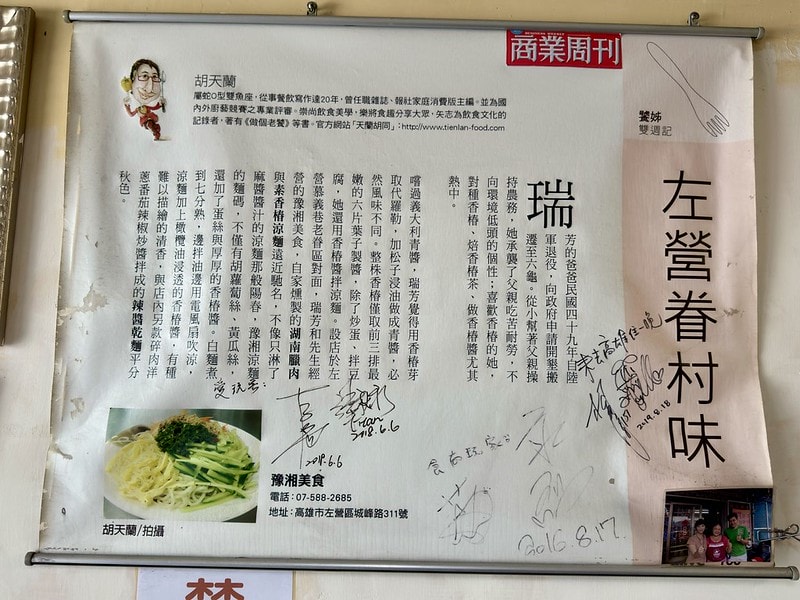 商業周刊
胡天蘭
屬蛇O型雙魚座，從事餐飲寫作達20年，曾任職雜誌、報社家庭消費版主編。並為國
內外廚藝競賽之專業評審。崇尚飲食美學，樂將食趣分享大眾，矢志為飲食文化的
記錄者，著有《做個老饕》等書。官方網站「天蘭胡同」：http://www.tienlan-food.com
饕姊
雙週記
左營眷村味
瑞
芳的爸爸民國四十九年自陸
軍退役，向政府申請開墾搬
遷至六龜。從小幫著父親操
持農務，她承襲了父親吃苦耐勞，不
向環境低頭的個性；喜歡香椿的她，
對種香椿、焙香椿茶、做香椿醬尤其
熱中。
嚐過義大利青醬，瑞芳覺得用香椿芽
取代羅勒，加松子浸油做成青醬，必
然風味不同。整株香椿僅取前三排最
嫩的六片葉子製醬，除了炒蛋、拌豆
腐，她還用香椿醬拌涼麵。設店於左
營慕義巷老眷區對面，瑞芳和先生經
營的豫湘美食，自家燻製的湖南臘肉
與素香椿涼麵遠近馳名，不像只淋了
麻醬醬汁的涼麵那般陽春，豫湘涼麵
的麵碼，不僅有胡蘿蔔絲，黃瓜絲，
還加了蛋絲與厚厚的香椿醬。白麵煮
到七分熟，邊拌油邊用電風扇吹涼，
涼麵加上橄欖油浸透的香椿醬，有種
難以描繪的清香，與店內另款碎肉洋
蔥番茄辣椒炒醬拌成的辣醬乾麵平分
秋色。
來去高雄住一晚
2019.8.18
愛玩客：
2018.6.6
2018.6.6
食尚玩家
2016.8.17
豫湘美食
電話：07-588-2685
地址：高雄市左營區城峰路311號
胡天蘭/拍攝